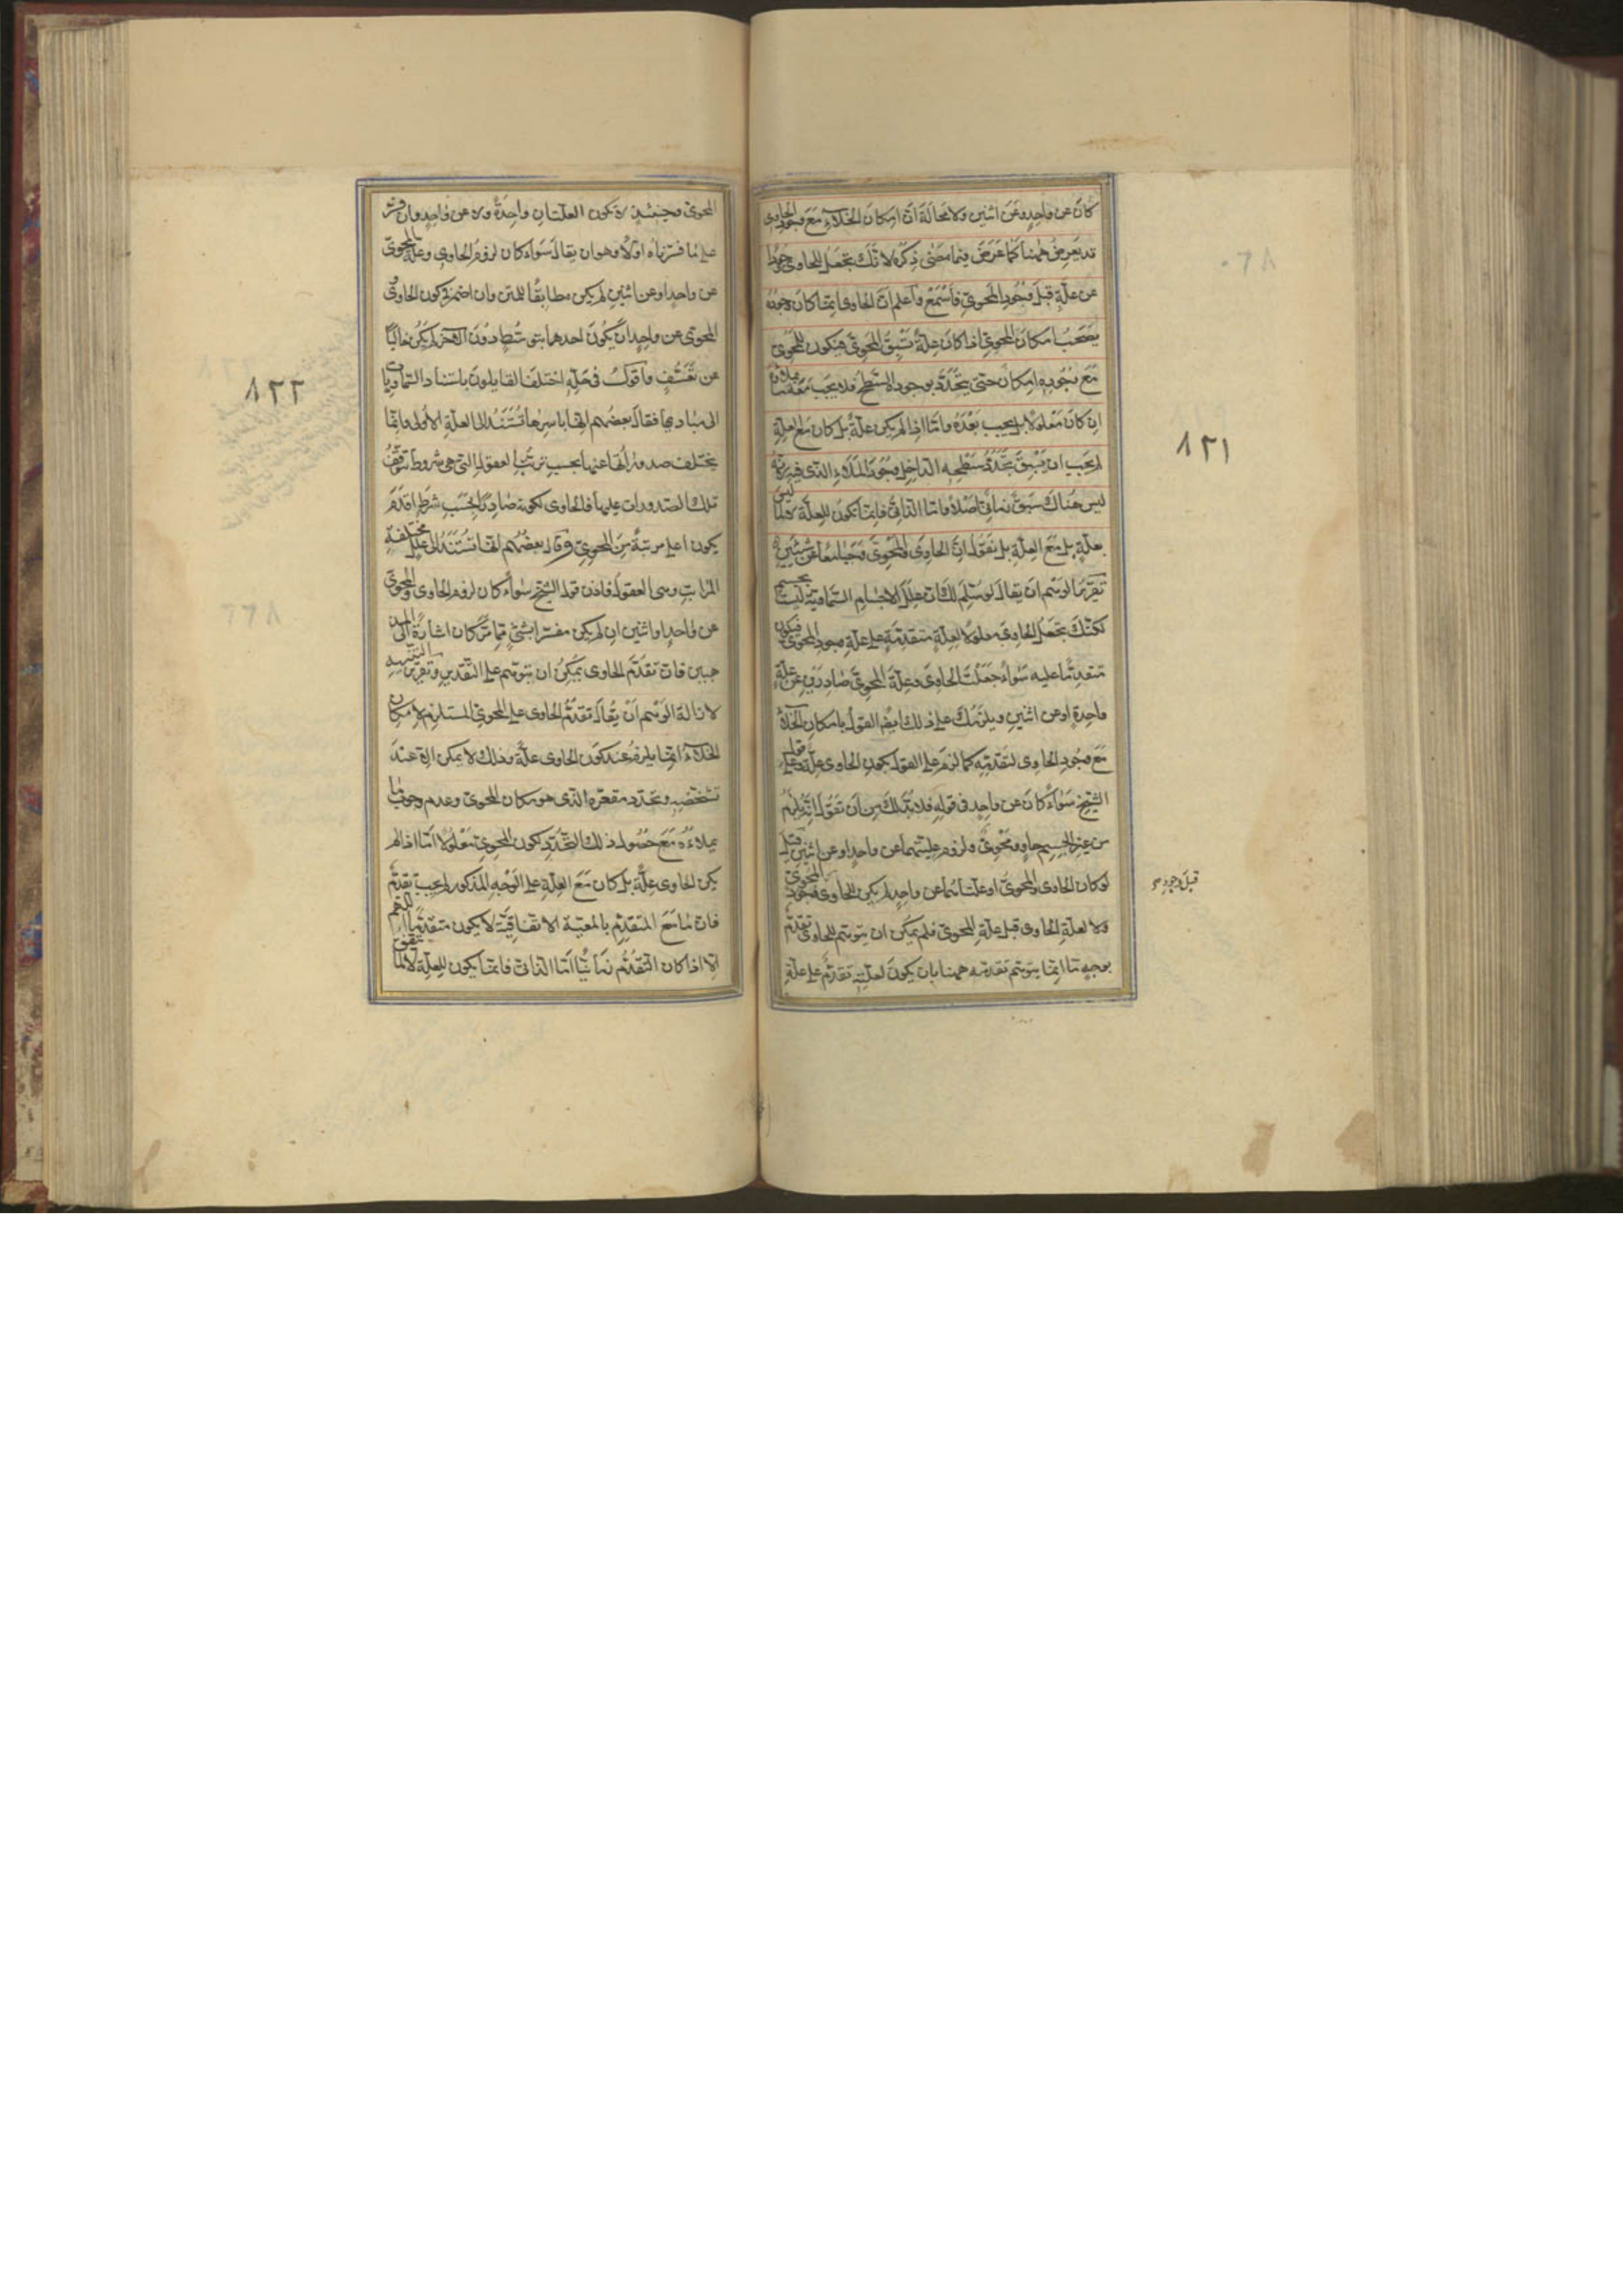 كان عن واحد وعن اثنين ولا محالة ان امكان الخلاء مع وجود الحاوى
قد يعرض ههنا كما عرض فيما مضى ذكره لانك تجعل للحاوى وجودا
عن علة قبل وجود المحوى فاسمع واعلم ان الحاوى انما كان وجوده
يصحب امكان المحوى اذا كان علة تسبق المحوى فيكون للمحوى
مع وجوده امكان حتى يتحدد بوجوده السطح فلا يجب معه ملاؤه
ان كان معلولا بل يجب بعده واما اذا لم يكن علة بل كان مع العلة
لم يجب ان يسبق تحدد سطحه الداخل وجود الملاء الذى فيه لانه
ليس هناك سبق زمانى اصلا واما الذاتى فانما يكون للعلة لا لما ليس
بعلة بل مع العلة بل نقول ان الحاوى والمحوى وجبا معا عن شيئين
تقرير الوهم ان يقال لو سلم لك ان علل الاجسام السماوية ليست بجسم
لكنك تجعل الحاوى معلولا لعلة متقدمة على علة وجود المحوى فيكون
متقدما عليه سواء جعلت الحاوى وعلة المحوى صادرين عن علة
واحدة او عن اثنين ويلزمك على ذلك ايضا القول بامكان الخلاء
مع وجود الحاوى لتقدمه كما لزم على القول بكون الحاوى علة وقول
الشيخ سواء كان عن واحد فى قوله فلا بد لك من ان تقول انه يلزم
من غير الجسم حاو ومحوى ولزوم علتيهما عن واحد او عن اثنين
لو كان الحاوى والمحوى او علتاهما عن واحد لم يكن للحاوى وجود
قبل وجود
المحوى
ولا لعلة الحاوى قبل علة المحوى فلم يمكن ان يتوهم للحاوى تقدم
بوجه ما انما يتوهم تقدمه ههنا بان يكون لعلته تقدم على علة
٨٢١
المحوى وحينئذ لا تكون العلتان واحدة ولا عن واحد وان فسر
على ما فسرناه اولا وهو ان يقال سواء كان لزوم الحاوى وعلة المحوى
عن واحد او عن اثنين لم يكن مطابقا للمتن وان اضمر فى كون الحاوى
المحوى عن واحد ان يكون احدهما بتوسط دون الآخر لم يكن خاليا
عن تعسف واقول فى حله اختلف القايلون باستناد السماويات
الى مباديها فقال بعضهم انها باسرها تستند الى العلة الاولى وانما
يختلف صدوراتها عنها بحسب ترتب العقول التى هى شروط يتوقف
تلك الصدورات عليها فالحاوى لكونه صادرا بحسب شرط اقدم
يكون اعلى مرتبة من المحوى وقال بعضهم انها تستند الى علل مختلفة
المراتب وهى العقول فاذن قول الشيخ سواء كان لزوم الحاوى والمحوى
عن واحد او اثنين ان لم يكن مفسرا بشئ مما مر كان اشارة الى المذ
هبين فان تقدم الحاوى يمكن ان يتوهم على التقديرين وتقرير التنبيه
لازالة الوهم ان يقال تقدم الحاوى على المحوى المستلزم لامكان
الخلاء انما يلزم عند كون الحاوى علة وذلك لا يمكن الا عند
تشخصه وتحدد مقعره الذى هو مكان المحوى وعدم وجوب ما
يملاءه مع حصول ذلك التحدد لكون المحوى معلولا اما اذا لم
يكن الحاوى علة بل كان مع العلة على الوجه المذكور لم يجب تقدمه
فان ما مع المتقدم بالمعية الاتفاقية لا يكون متقدما اللهم
الا اذا كان التقدم زمانيا اما الذاتى فانما يكون للعلة لا لما يتفق
٨٢٢